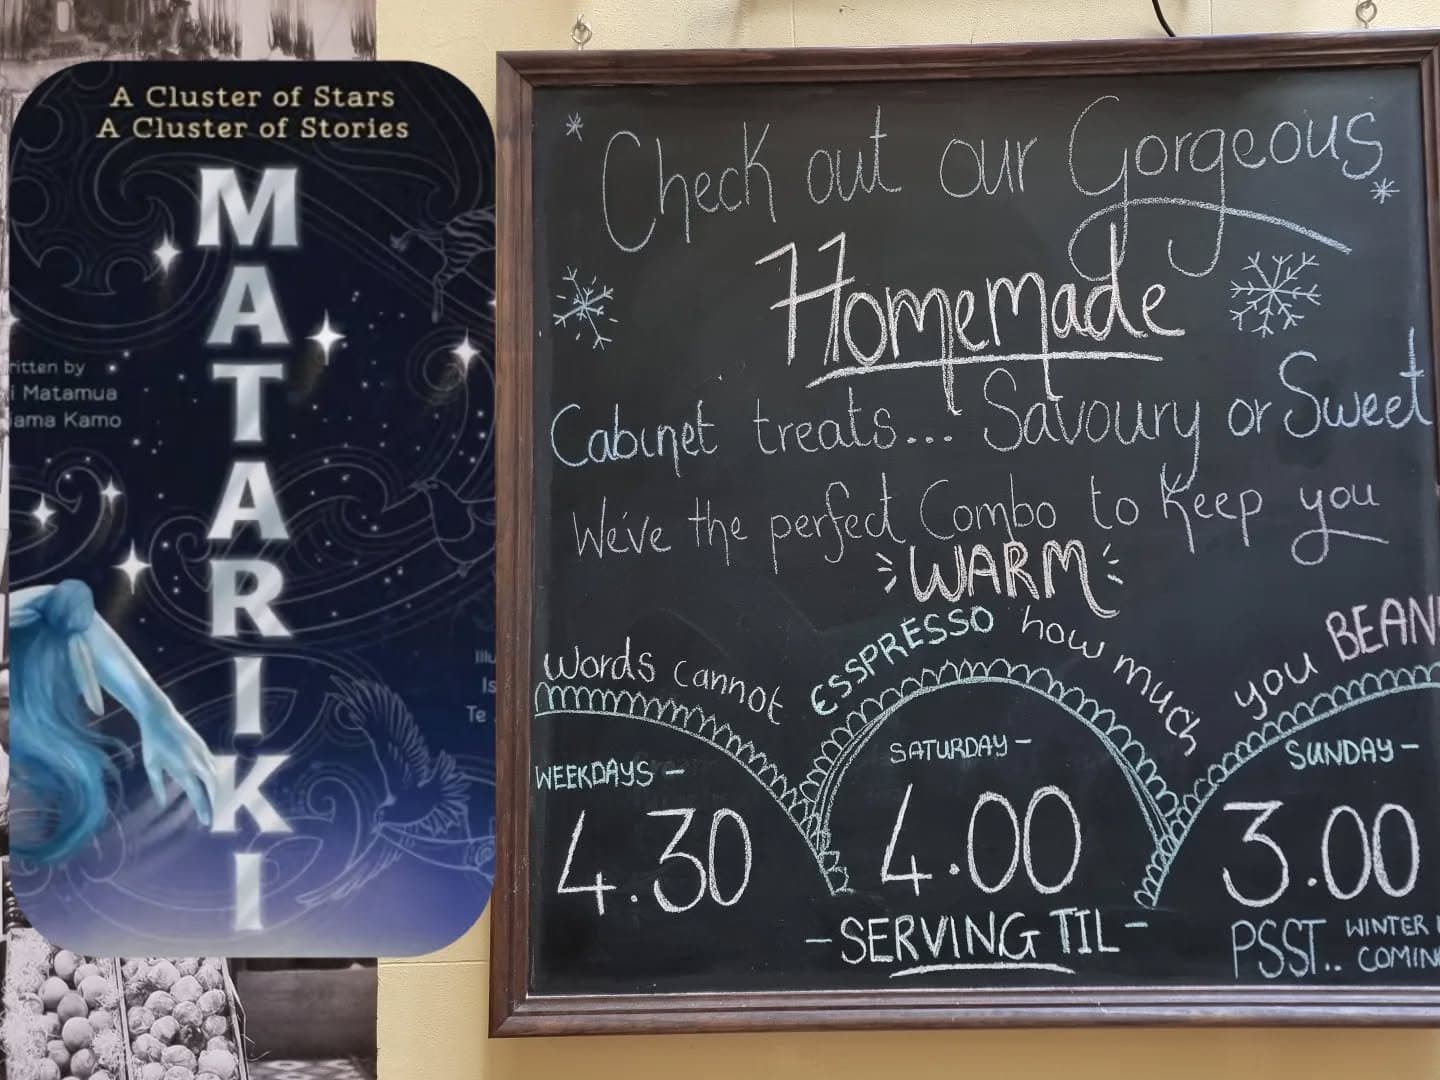 A Cluster of Stars
A Cluster of Stories
MATARIKI
ritten by
i Matamua
iama Kamo
Illu
Is
Te
Check out our Gorgeous
Homemade
Cabinet treats... Savoury or Sweet
We've the perfect Combo to Keep you
WARM
words cannot ESSPRESSO how much you BEAN
WEEKDAYS -
4.30
SATURDAY -
4.00
SUNDAY -
3.00
- SERVING TIL -
PSST.. WINTER
COMIN